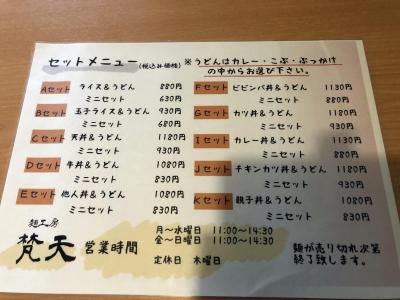 セットメニュー(税込み価格) ※うどんはカレー・こぶ・ぶっかけ
の中からお選び下さい。
Aセット ライス&うどん 880円
ミニセット 630円
Bセット 玉子ライス&うどん 930円
ミニセット 680円
Cセット 天丼&うどん 1180円
ミニセット 930円
Dセット 牛丼&うどん 1080円
ミニセット 830円
Eセット 他人丼&うどん 1080円
ミニセット 830円
Fセット ビビンバ丼&うどん 1130円
ミニセット 880円
Gセット カツ丼&うどん 1180円
ミニセット 930円
Iセット カレー丼&うどん 1130円
ミニセット 880円
Jセット チキンカツ丼&うどん 1180円
ミニセット 930円
Kセット 親子丼&うどん 1080円
ミニセット 830円
麺工房
梵天 営業時間
月~水曜日 11:00~14:30
金~日曜日 11:00~14:30
定休日 木曜日
麺が売り切れ次第
終了致します。